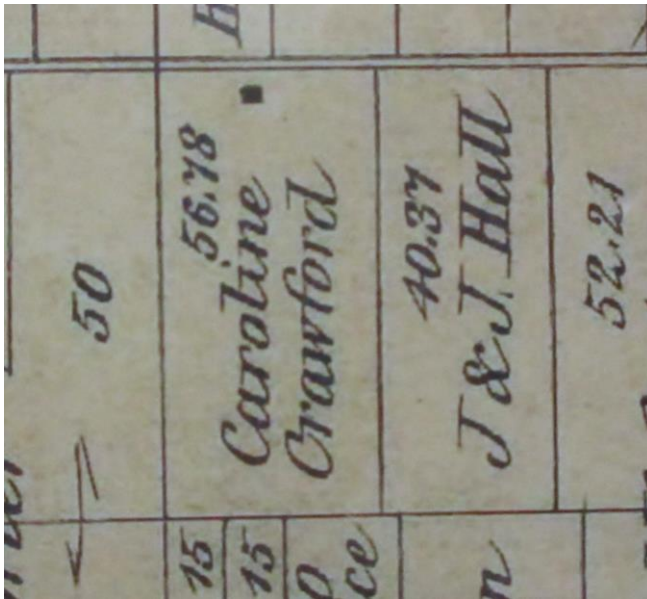 50
56.78
Caroline
Crawford
40.37
J & J. Hall
52.21
15
15